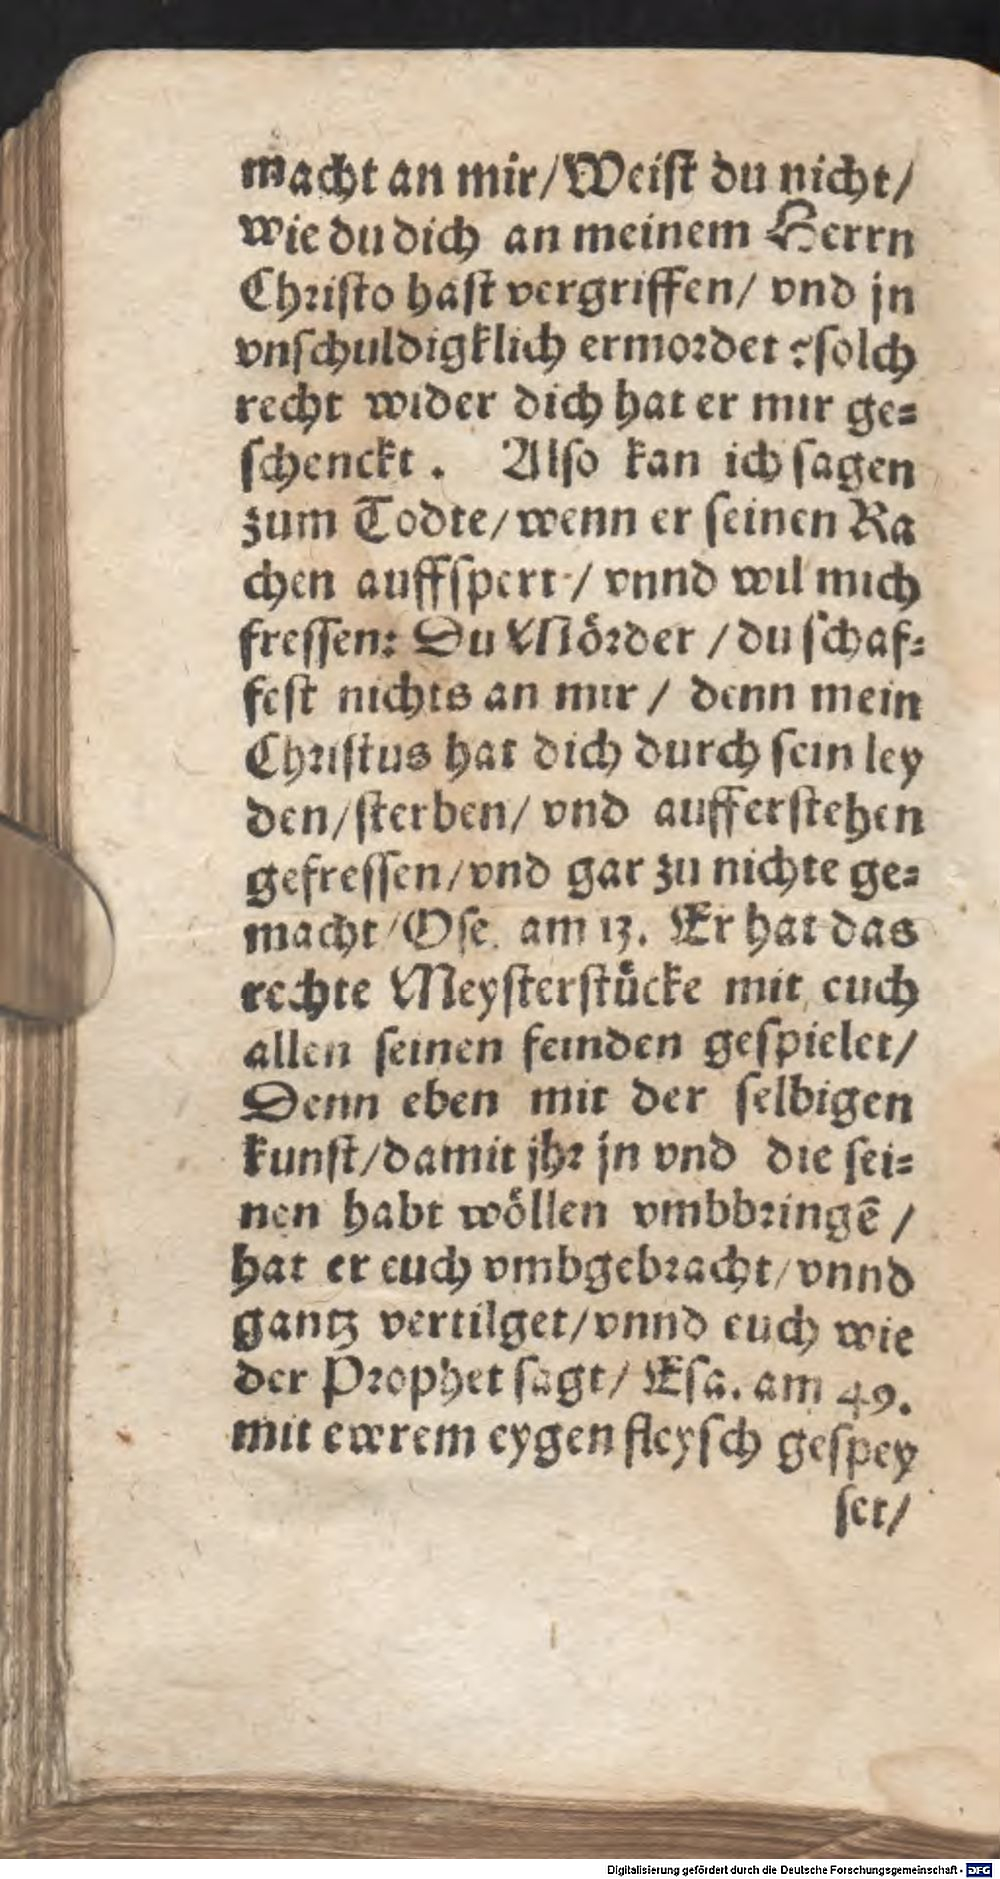 macht an mir/Weiſt du nicht/
wie du dich an meinem Herrn
Chꝛiſto haſt vergriffen/ vnd jn
vnſchuldigklich ermoꝛdet? ſolch
recht wider dich hat er mir ge⸗
ſchenckt. Alſo kan ich ſagen
zum Todte/wenn er ſeinen Ra
chen auffſpert/ vnnd wil mich
freſſen: Du Moͤꝛder /du ſchaf⸗
feſt nichts an mir/ denn mein
Chꝛiſtus hat dich durch ſein ley
den/ſterben/ vnd aufferſtehen
gefreſſen/vnd gar zu nichte ge⸗
macht/Oſe. am 13. Er hat das
rechte Meyſterſtuͤcke mit euch
allen ſeinen feinden geſpielet/
Denn eben mit der ſelbigen
kunſt/damit jhꝛ jn vnd die ſei⸗
nen habt woͤllen vmbbꝛingē/
hat er euch vmbgebꝛacht/vnnd
gantz vertilget/vnnd euch wie
der Pꝛophet ſagt/ Eſa. am 49.
mit ewrem eygen fleyſch geſpey
ſet/
Digitalisierung gefördert durch die Deutsche Forschungsgemeinschaft - DFG